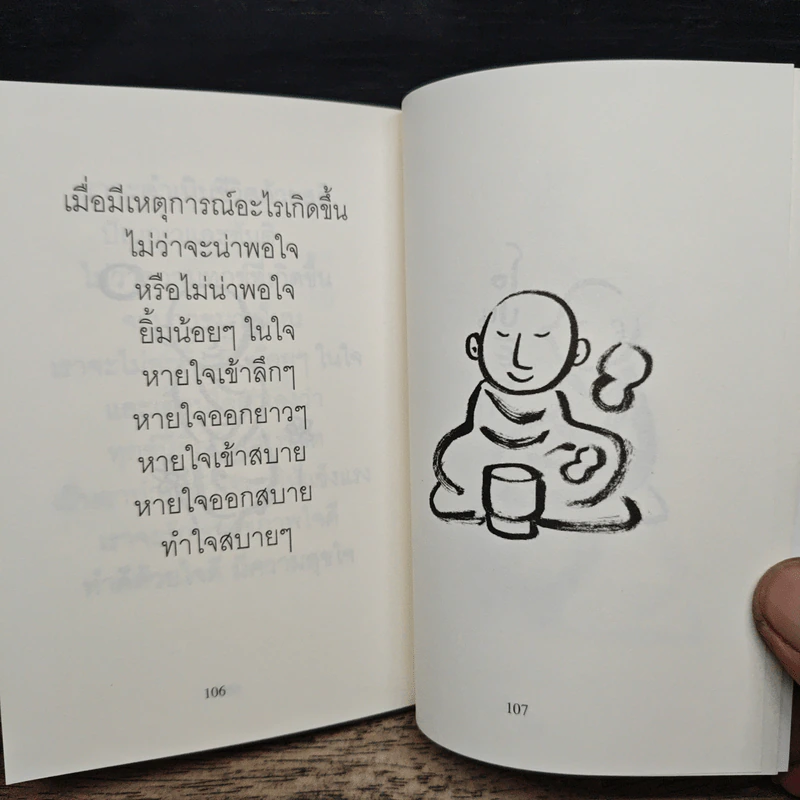 เมื่อมีเหตุการณ์อะไรเกิดขึ้น
ไม่ว่าจะน่าพอใจ
หรือไม่น่าพอใจ
ยิ้มน้อยๆ ในใจ
หายใจเข้าลึกๆ
หายใจออกยาวๆ
หายใจเข้าสบาย
หายใจออกสบาย
ทำใจสบายๆ
106
107